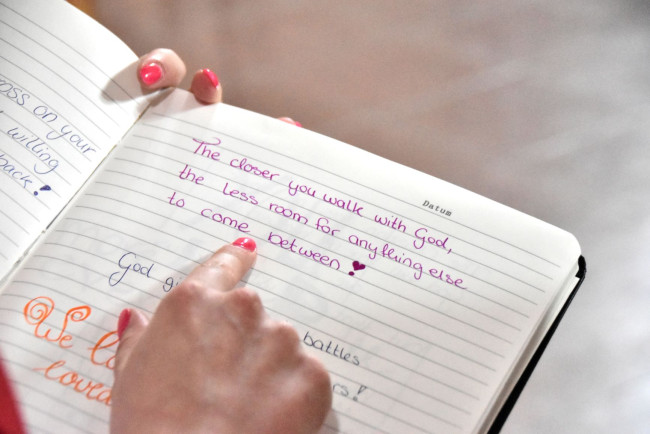 oss on your
willing
back!
Datum
The closer you walk with God,
the less room for anything else
to come between!
God
battles
We
loved